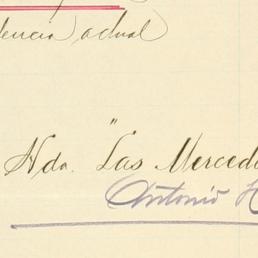 dencia actual
Hda. "Las Merced
Antonio H